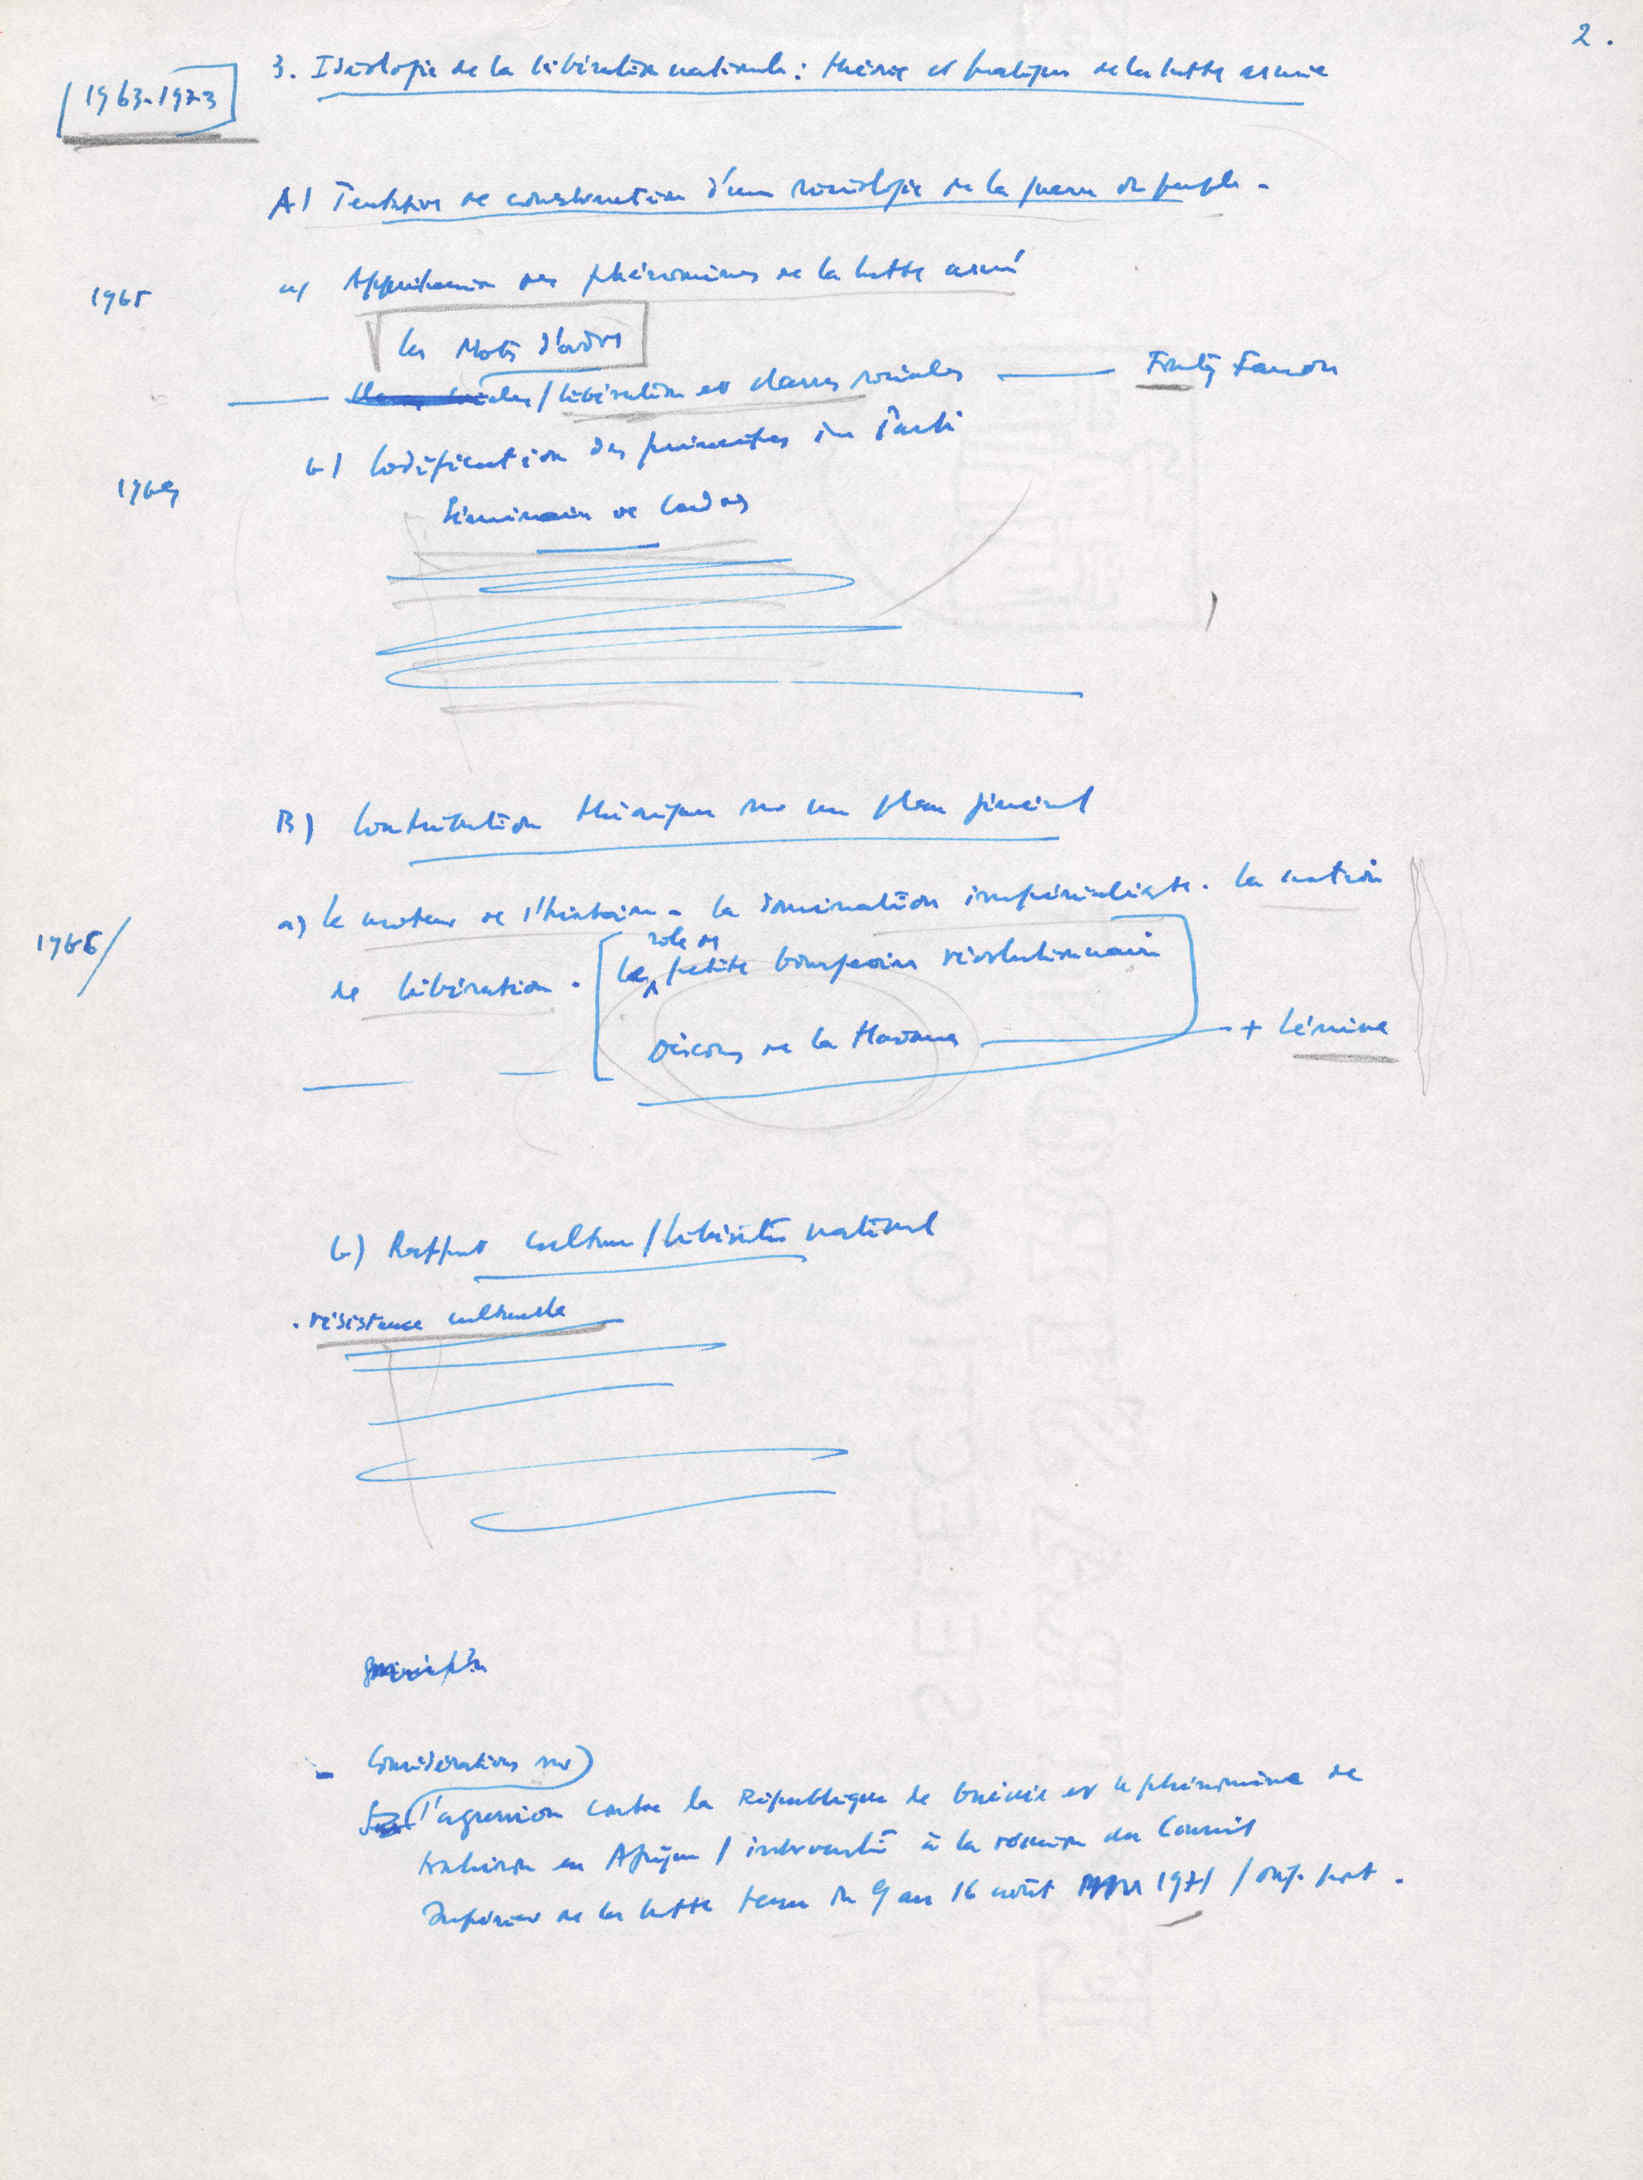 2.
1963-1973
3. Idéologie de la libération nationale : théorie et pratique de la lutte armée
A) Tentative de construction d'une sociologie de la guerre du peuple.
1965
a) Appréhension des phénomènes de la lutte armé
les Mots d'ordre
/ libération et classes sociales — Frantz Fanon
1969
b) Codification des principes du Parti
Séminaire de Cadres
B) Contribution théorique sur un plan général
a) le moteur de l'histoire - la domination impérialiste. la nation
1966/
rôle de
de libération. [ la petite bourgeoisie révolutionnaire
Discours de la Havane — + Lénine
b) Rapport culture / libératiō national
. résistance culturelle
- Considérations sur)
l'agression contre la République de Guinée et le phénomène de
trahison en Afrique / interventiō à la réunion du Conseil
Supérieur de la lutte tenu du 9 au 16 août 1971 /